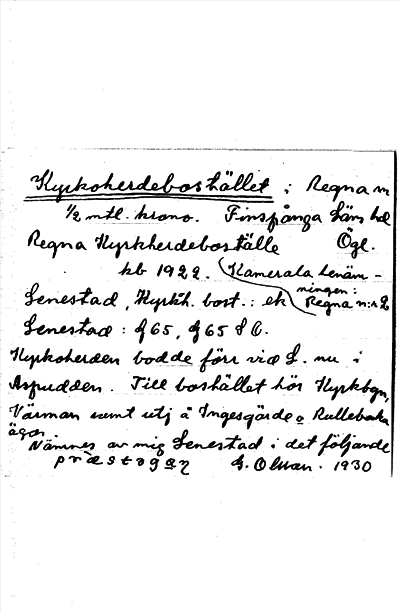 Kyrkoherdebostället i Regna sn
½ mtl. krono. Finspånga läns hd
Regna Kyrkherdeboställe Ögl.
kb 1922. (Kamerala benäm-
ningen:
Senestad, Kyrkh. bost.: ek Regna n:r 2
Senestad: J65, J65 8 6.
Kyrkoherden bodde förr vid S. nu i
Aspudden. Till bostället hör Kyrkbyn,
Värman samt utj å Ingesgärde o Rullebacka
ägor.
Nämnes av mig Senestad i det följande
G. Olsson. 1930